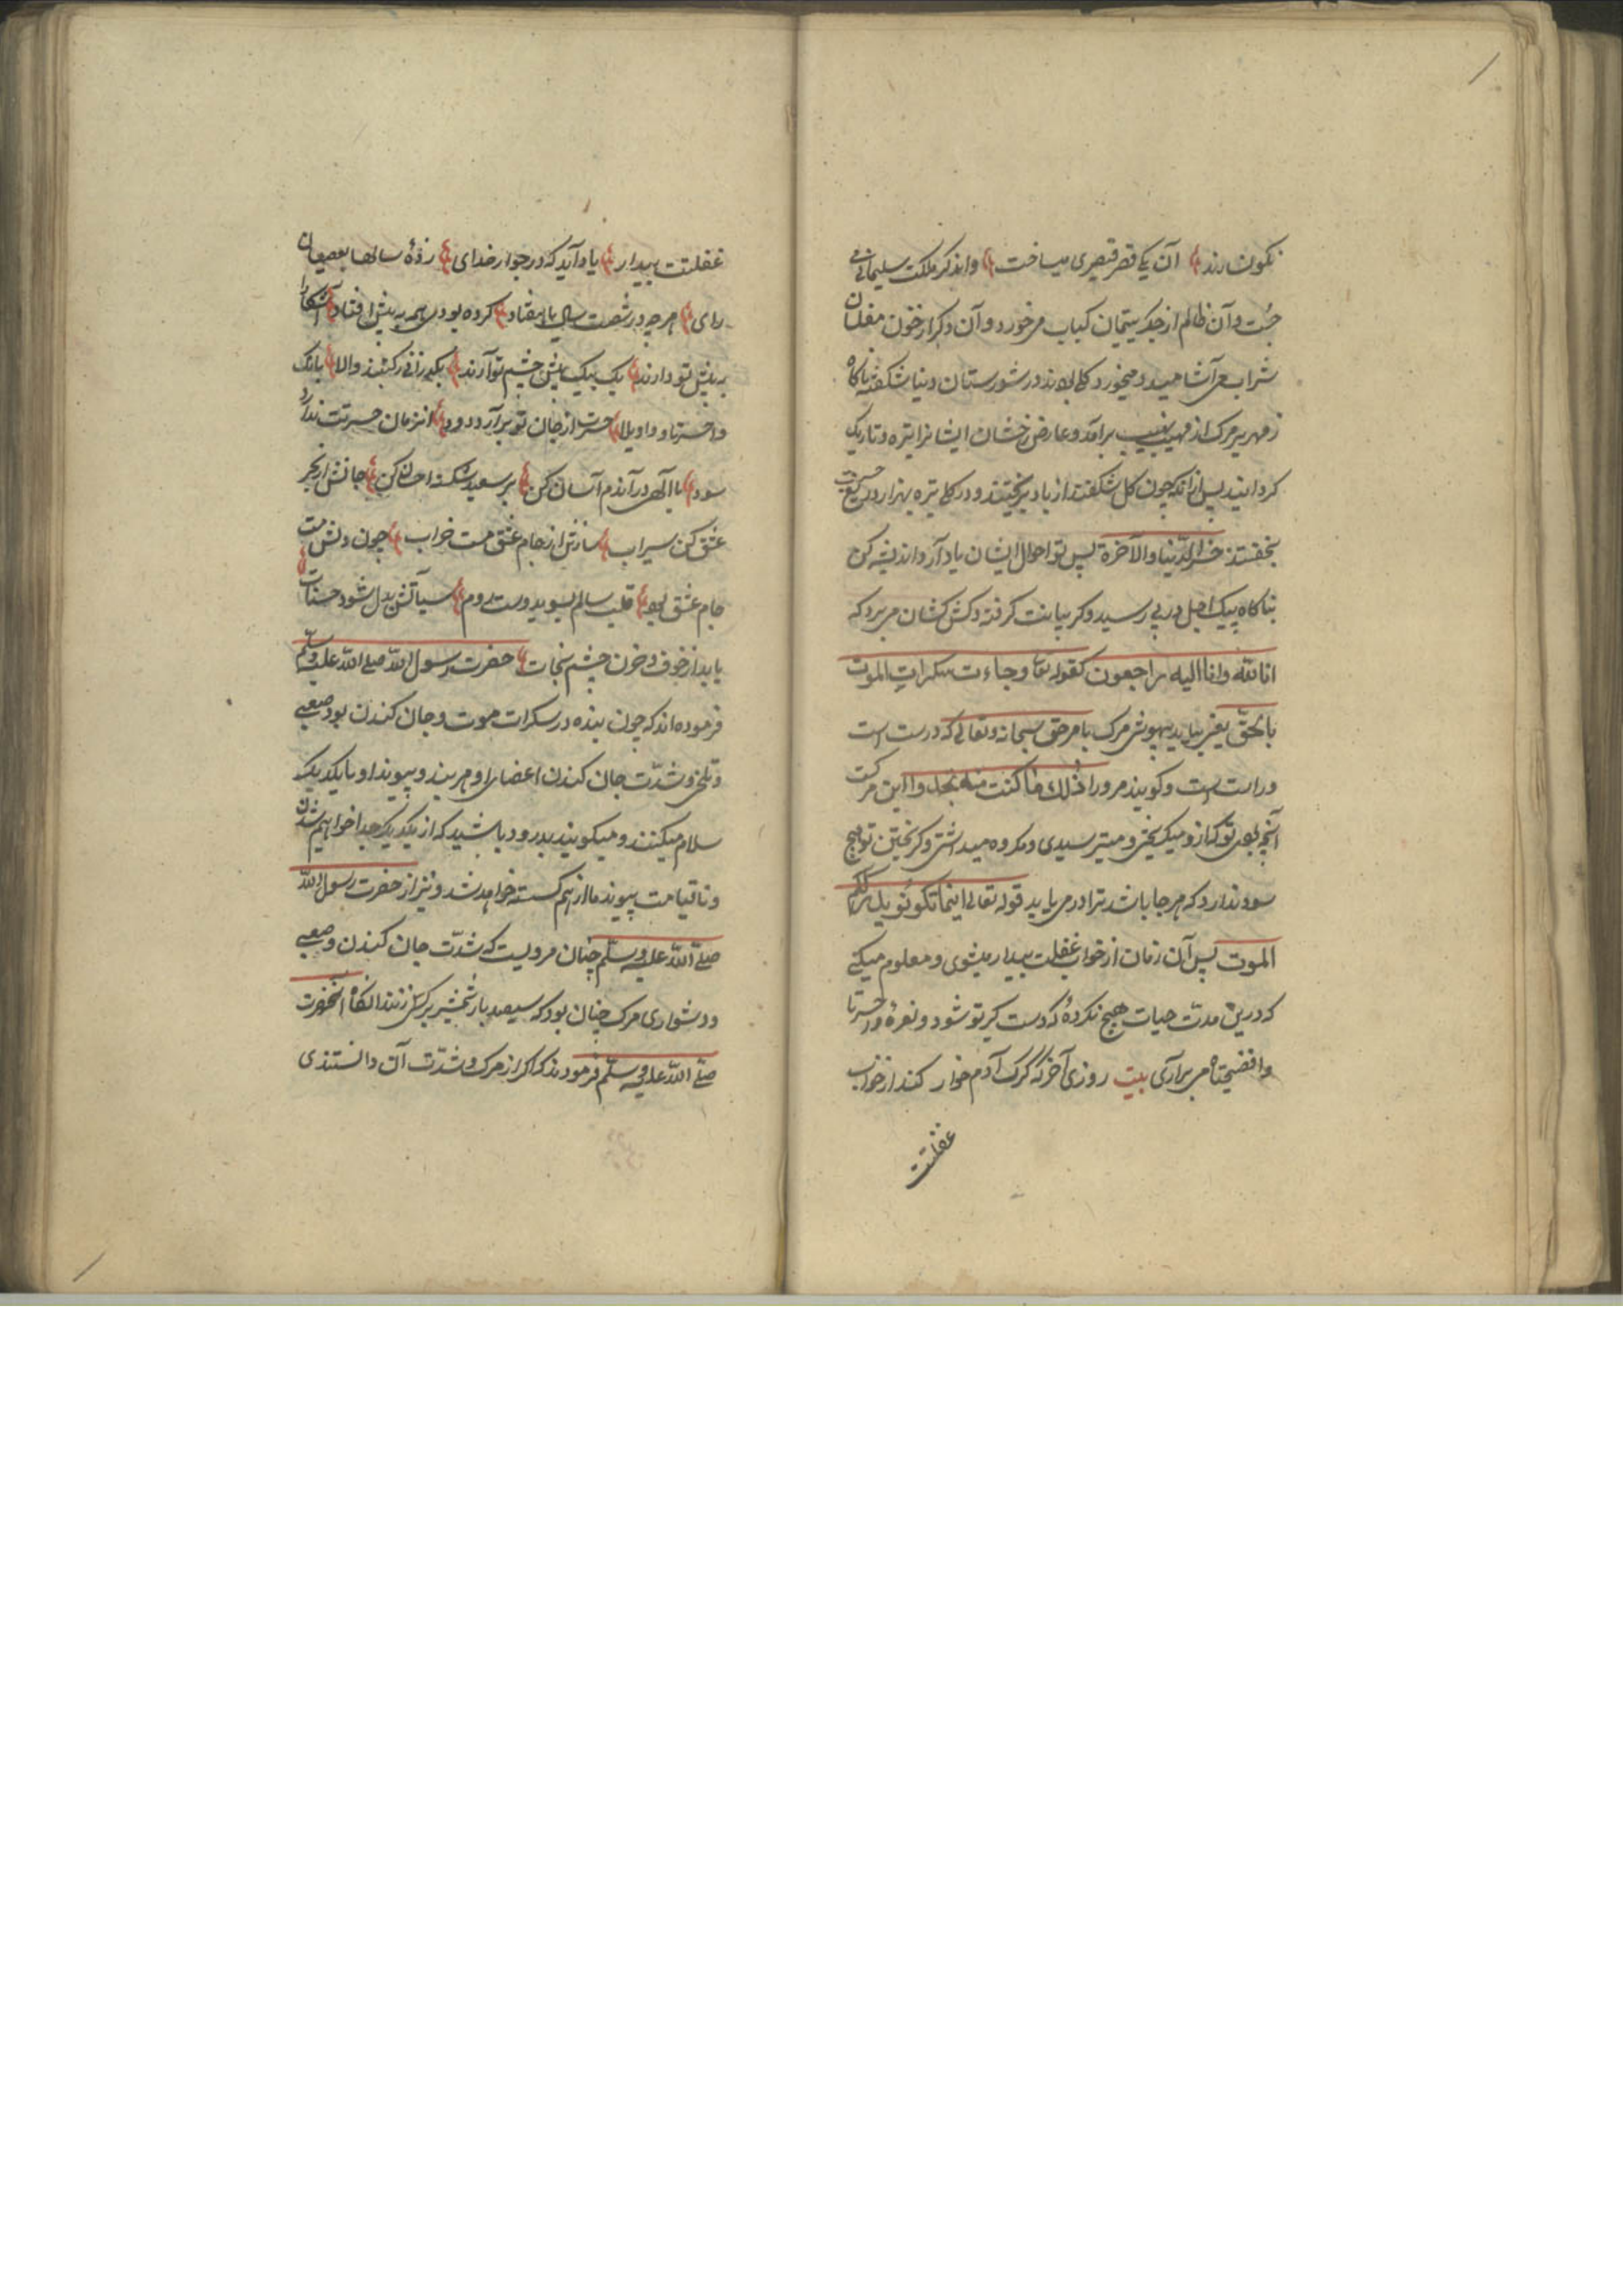 نکون رند آن یکی قصر قیصری میساخت واندکر ملکت سلیمانی
جُست وآن ظالم از جکر یتیمان کباب مرخورد وآن دکر از خون مفلسان
شراب مرآشامید ومیخورد در شورستان دنیا شکفته ناکاه
زمهریر مرک از مهیب برآمد وعارض رخشان ایشانرا تیره وتاریک
کردانید پس ازانکه چون کل شکفتند از باد بریختند ودر کل تیره بهزار
بخفتند خسر الدنیا والآخرة پس تو احوال ایشان یاد آر واندیشه کن
بناکاه پیک اجل در پی رسید وکریبانت کرفته وکش کشان مربرد که
انا لله وانا الیه راجعون کقوله تعا وجاءت سکرات الموت
بالحق یعنی بیاید بیهوشی مرک بامر حق سبحانه وتعالی که درست است
وراست است وکویند مرورا ذلک ما کنت منه تحید واین مرکت
آنچه بودی تو کزو میکریختی ومیترسیدی ومکروه میداشتی وکریختن تو هیچ
سود ندارد که هرجا باشد ترا درمی یابد قوله تعالی اینما تکونوا یدرککم
الموت پس آن زمان از خواب غفلت بیدار میشوی ومعلوم میکنی
که درین مدت حیات هیچ نکردۀ که دست کیر تو شود ونعرۀ واحسرتا
وافضیحتاه مربرآری بیت روزی آخر که کرک آدم خوار کند از خواب
غفلتت
غفلتت بیدار یاد آید که در جوار خدای زدۀ سالها بعصیان
رای هرچه در شصت سال یا هفتاد کرده بودی همه به پیش افتاد آشکارا
به پیش تو دارند یک بیک پیش چشم تو آرند والا بانک
واحسرتا وواویلا حسرت از جان تو برآرد دود انزمان حسرتت ندارد
سود یا الهی درآندم آسان کن بر سعید شکسته احسان کن جانش از بحر
عشق کن سیراب سازش از جام عشق مست خراب چون دلش مست
جام عشق بود قلب سالم بسوی دوست رود سیاتش بدل شود حسنات
یابد از خوف وخون چشم نجات حضرت رسول الله صلی الله علیه وسلم
فرموده اند که چون بنده در سکرات موت وجان کندن بود صعبی
وتلخی وشدت جان کندن اعضای او هر بند وپیوند او با یکدیکر
سلام میکنند ومیکویند بدرود باشید که از یکدیکر جدا خواهیم شدن
وتا قیامت پیوند ما از هم کسسته خواهد شد ونیز از حضرت رسول الله
صلی الله علیه وسلم چنان مرویست که شدت جان کندن وصعبی
ودشواری مرک چنان بود که سیصد بار شمشیر بر کسی زنند انکاه آنحضرت
صلی الله علیه وسلم فرمودند که اکر از مرک وشدت آن دانستندی